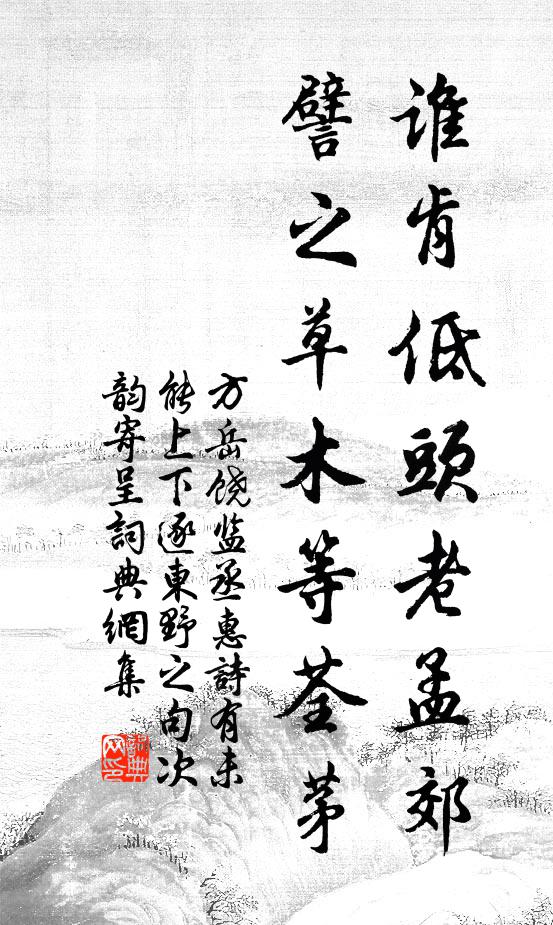 谁肯低頭老孟郊
譬之草木等荃茅
方岳饶监丞惠詩有未
能上下逐東野之句次
韵寄呈詞典網集